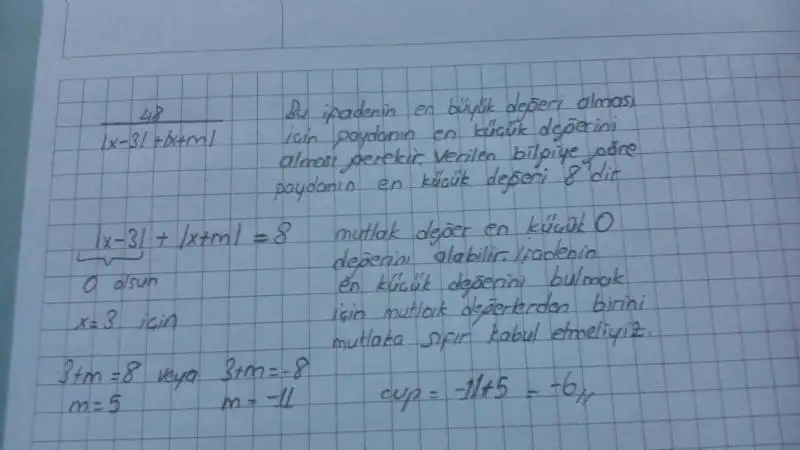 48
|x-3|+|x+m|
Bu ifadenin en büyük değeri alması
için paydanın en küçük değerini
alması gerekir. Verilen bilgiye göre
paydanın en küçük değeri 8'dir
|x-3| + |x+m| = 8
0 olsun
x=3 için
mutlak değer en küçük 0
değerini alabilir. İfadenin
en küçük değerini bulmak
için mutlak değerlerden birini
mutlaka sıfır kabul etmeliyiz.
3+m=8 veya 3+m=-8
m=5 m=-11
cvp = -11+5 = -6,,